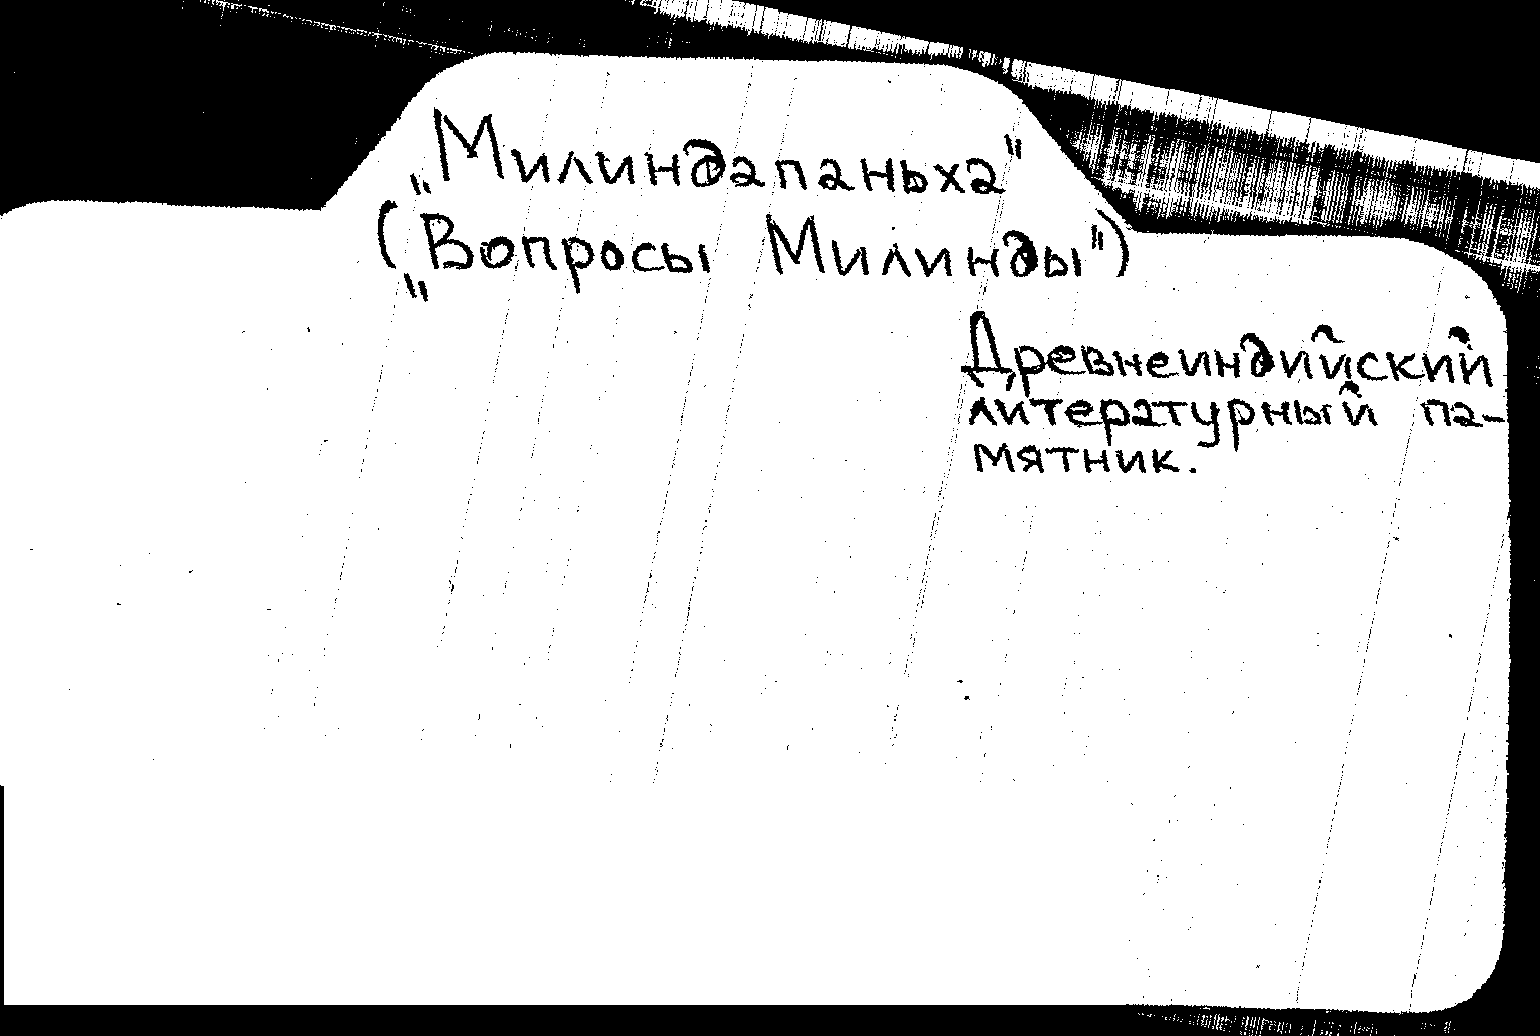 „Милиндапаньха"
(„Вопросы Милинды")
Древнеиндийский
литературный па-
мятник.